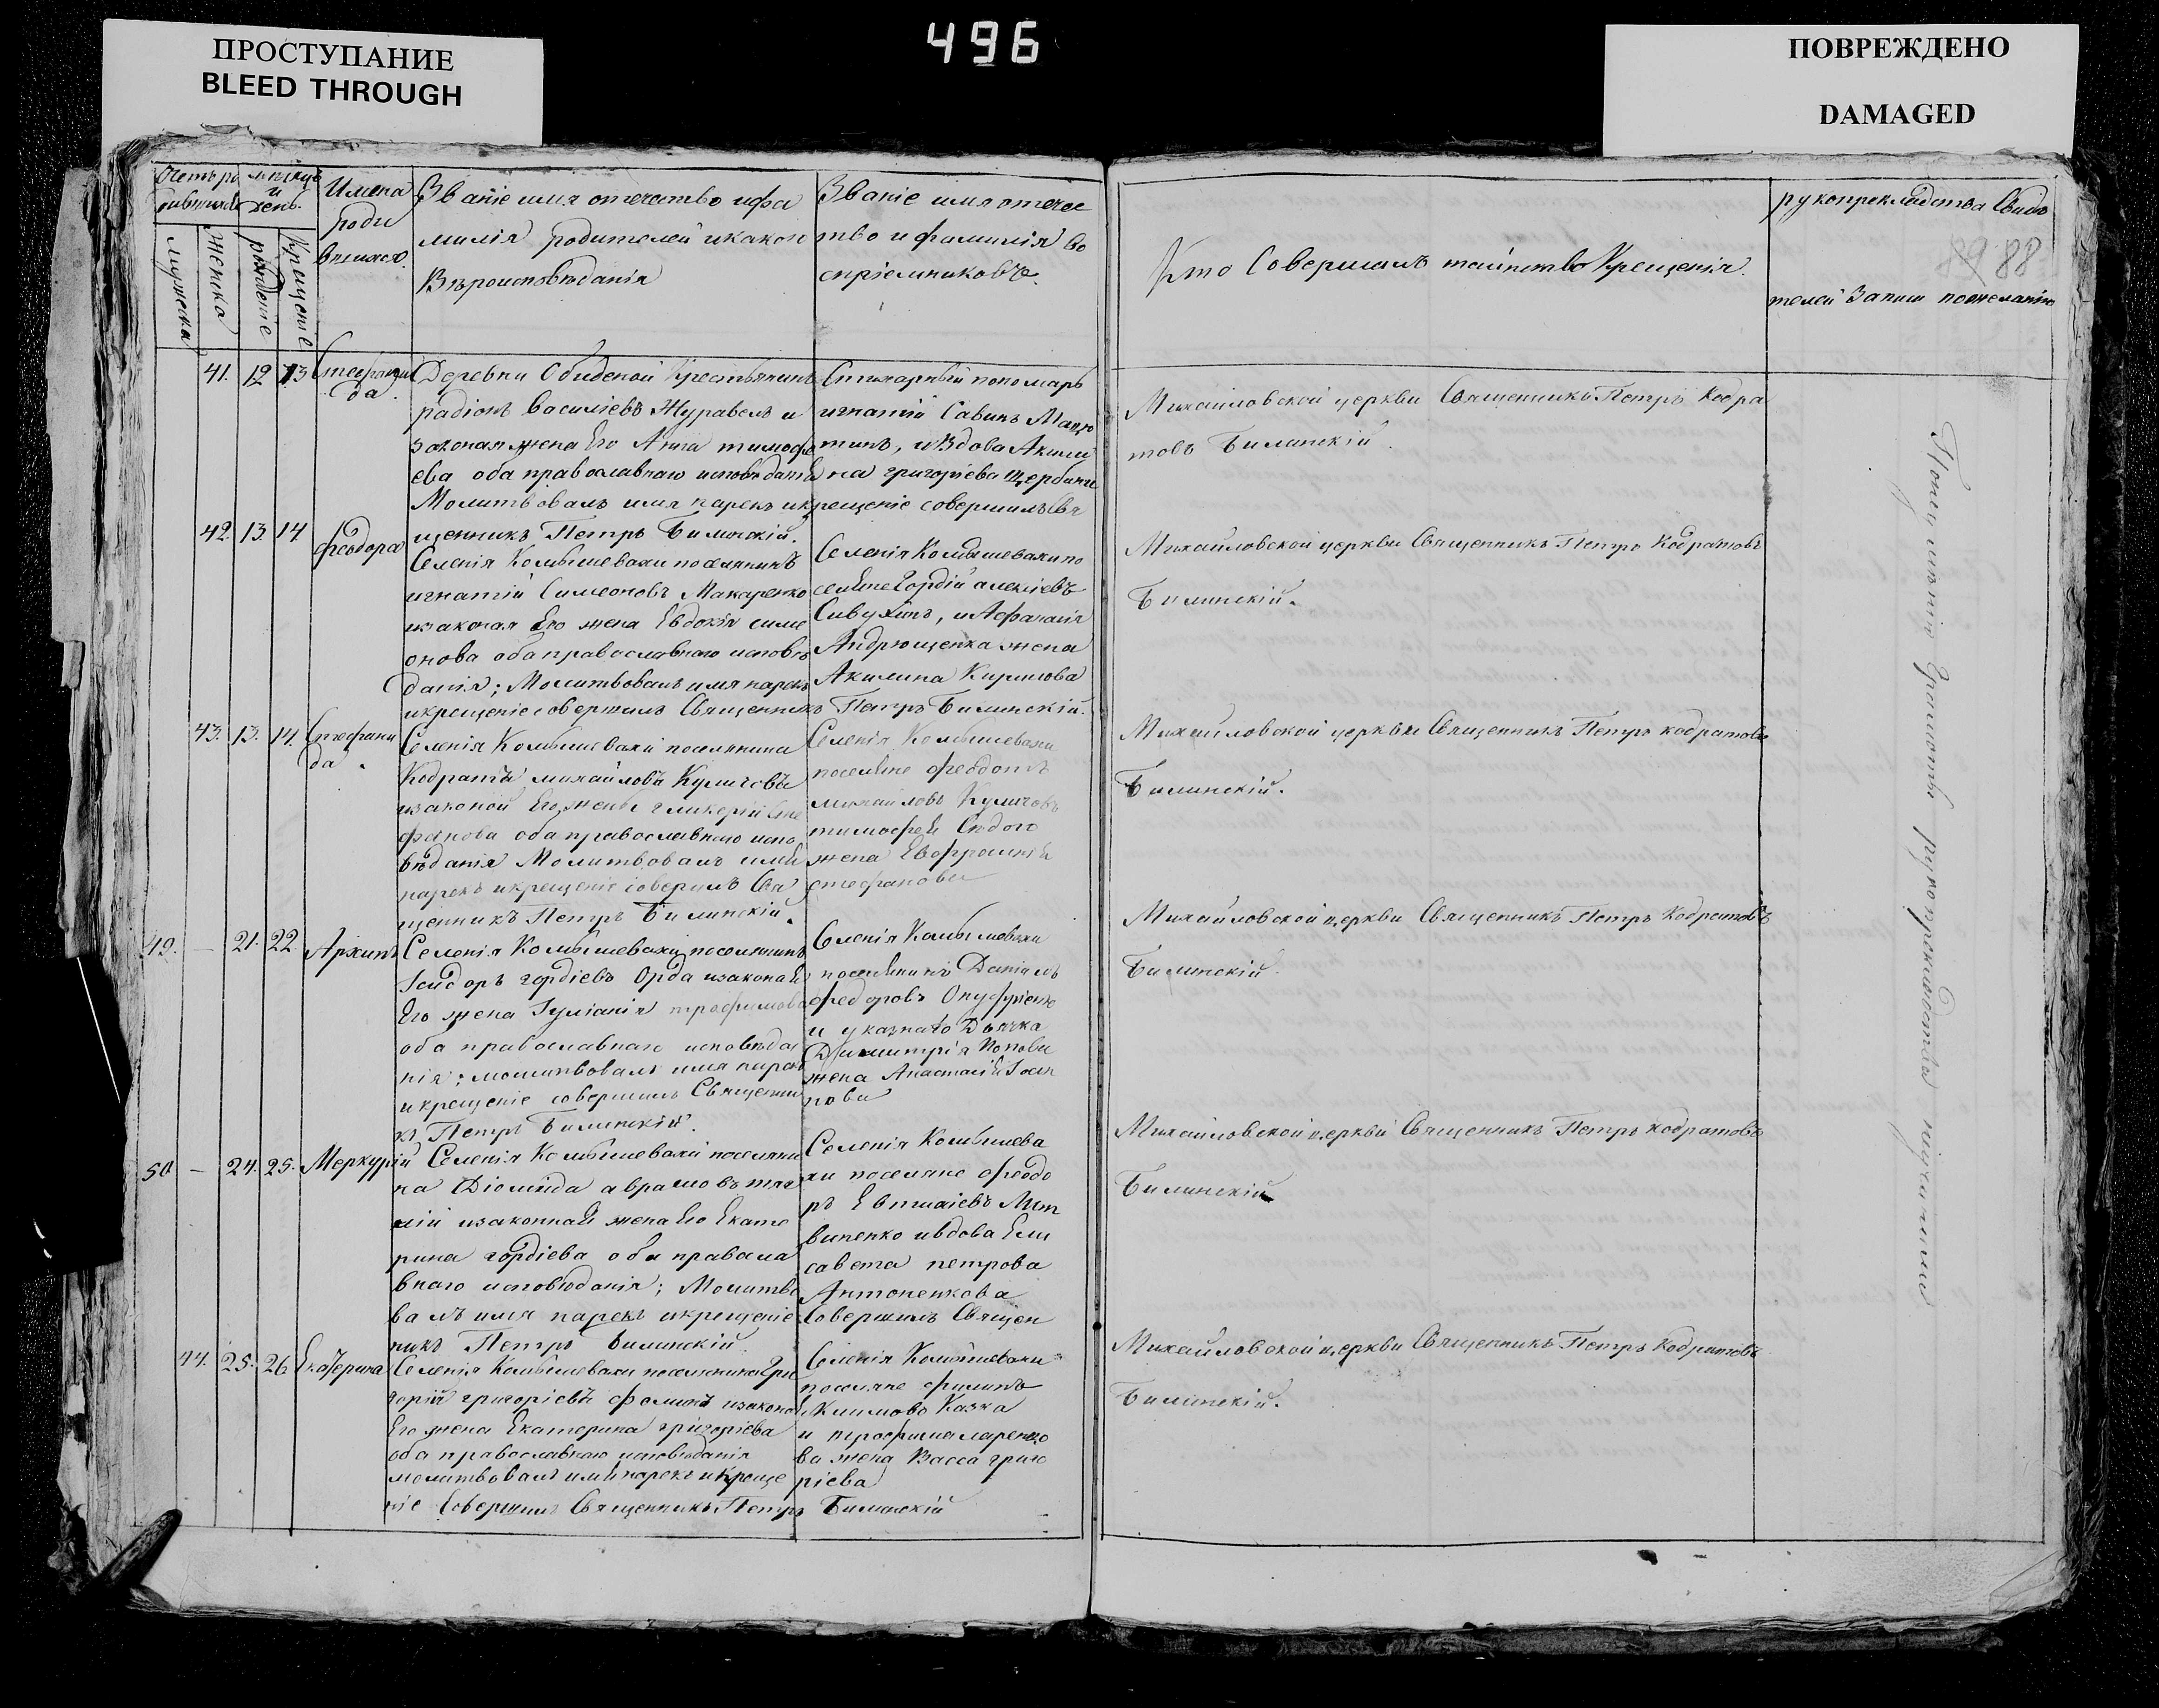 ПРОСТУПАНИЕ
BLEED THROUGH
496
ПОВРЕЖДЕНО
DAMAGED
мѣсяцъ
и
день.
мужеска
женска
рожденіе
Крещеніе
Имена
Роди
вшихся.
Званіе имя отечество ифа
милія родителей икакого
Вѣроисповѣданія
Званіе имя отечес
тво и фамилія во
спріемниковъ.
Кто Совершалъ таинство Крещенія.
рукоприкладства Свидѣ
89 88
телей Записи пожеланію
41. 12 13 Стефани
да.
Деревни Обиденой Крестьянинъ
радіонъ Василіевъ Журавель и
законая жена Его Анна тимофе
ева оба православнаго исповѣданія
Молитвовалъ имя нарекъ икрещеніе совершилъ Свя
щенникъ Петръ Билинскій.
пономарь
игнатій Савинъ
и Вдова Акили
на григоріева Щербини
Михайловской церкви Священникъ Петръ Кодра
товъ Билинскій.
42. 13. 14 Феодора
Селенія Комышевахи поселянинъ
игнатій Симеоновъ Макаренко
изаконая Его жена Евдокія симе
онова оба православнаго исповѣ
данія; Молитвовалъ имя нарекъ
икрещеніе совершилъ Священникъ Петръ Билинскій.
Селенія Комышевахи по
селяне Гордій алексіевъ
Сивухинъ, и Афанасія
Андрющенка жена
Акилина Кирилова
Михайловской церкви Священникъ Петръ Кодратовъ
Билинскій.
43. 13. 14. Стефани
да.
Селенія Комышевахи поселянина
Кодратъ михайловъ Куличовъ
изаконой Его жены гликеріи сте
фанова оба православнаго испо
вѣданія Молитвовалъ имя
нарекъ икрещеніе совершилъ Свя
щенникъ Петръ Билинскій.
Селенія Комышевахи
поселяне феодотъ
михайловъ Куличовъ
тимофея Сѣдого
жена Евфросинія
стефанова
Михайловской церкви Священникъ Петръ кодратовъ
Билинскій.
49. — 21. 22 Архипъ
Селенія Комышевахи поселянинъ
Ісидоръ гордіевъ Орда изаконая
Его жена Іуліанія трофимова
оба православнаго исповѣда
нія; молитвовалъ имя нарекъ
икрещеніе совершилъ Священни
къ Петръ Билинскій.
Селенія Комышевахи
поселянинъ Даніилъ
федоровъ Онуфріенко
и указнаго Дьячка
Димитрія Попова
жена Анастасія Іоан
нова
Михайловской церкви Священникъ Петръ Кодратовъ
Билинскій.
50 — 24. 25. Меркурій
Селенія Комышевахи поселяни
на Діомида аврамовъ
изаконная жена Его Екате
рина гордіева оба правосла
внаго исповѣданія; Молитво
валъ имя нарекъ икрещеніе Совершилъ Священ
никъ Петръ Билинскій.
Селенія Комышева
хи поселяне феодо
ръ Евтихіевъ Лит
виненко ивдова Ели
савета петрова
Антоненкова
Михайловской церкви Священникъ Петръ кодратовъ
Билинскій
44. 25. 26 Екатерина
Селенія Комышевахи поселянина Гри
горій григоріевъ Фоминъ изаконая
Его жена Екатерина григоріева
оба православнаго исповѣданія
молитвовалъ имя нарекъ иКреще
ніе Совершилъ Священникъ Петръ Билинскій
Селенія Комышевахи
поселяне филипъ
Климовъ Казка
и трофима ларенко
ва жена Васса григо
ріева
Михайловской церкви Священникъ Петръ Кодратовъ
Билинскій.